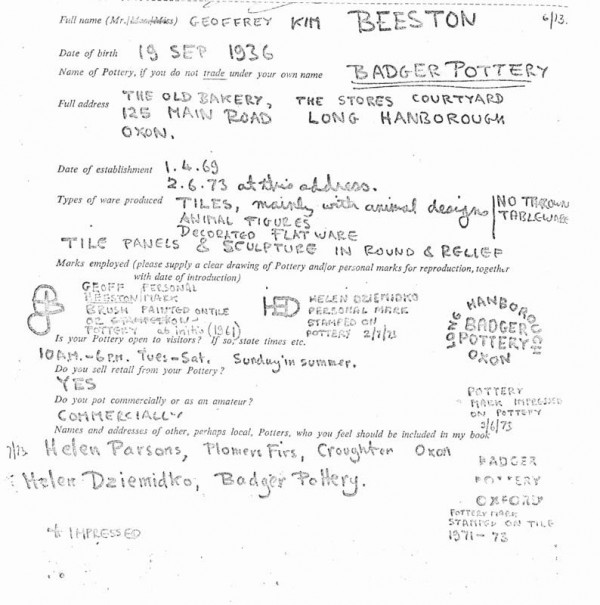 Full name (Mr. GEOFFREY KIM BEESTON 6/73.
Date of birth 19 SEP 1936
Name of Pottery, if you do not trade under your own name BADGER POTTERY
Full address THE OLD BAKERY, THE STORES COURTYARD
125 MAIN ROAD LONG HANBOROUGH
OXON.
Date of establishment 1.4.69
2.6.73 at this address.
Types of ware produced TILES, mainly with animal designs NO THROWN
ANIMAL FIGURES TABLEWARE
DECORATED FLATWARE
TILE PANELS & SCULPTURE IN ROUND & RELIEF
Marks employed (please supply a clear drawing of Pottery and/or personal marks for reproduction, together
with date of introduction)
GEOFF PERSONAL
BEESTON MARK
BRUSH PAINTED ON TILE
OR STAMPED ON
POTTERY (1961)
HED HELEN DZIEMIDKO
PERSONAL MARK
STAMPED ON
POTTERY 2/7/73
LONG HANBOROUGH
BADGER
POTTERY
OXON
Is your Pottery open to visitors? If so, state times etc.
10AM.-6PM. Tues-Sat. Sunday in summer.
Do you sell retail from your Pottery?
YES
POTTERY
MARK IMPRESSED
ON POTTERY
2/6/73
Do you pot commercially or as an amateur?
COMMERCIALLY
Names and addresses of other, perhaps local, Potters, who you feel should be included in my book
7/73 Helen Parsons, Plomers Firs, Croughton Oxon
Helen Dziemidko, Badger Pottery.
BADGER
POTTERY
OXFORD
POTTERY MARK
STAMPED ON TILE
1971-73
IMPRESSED